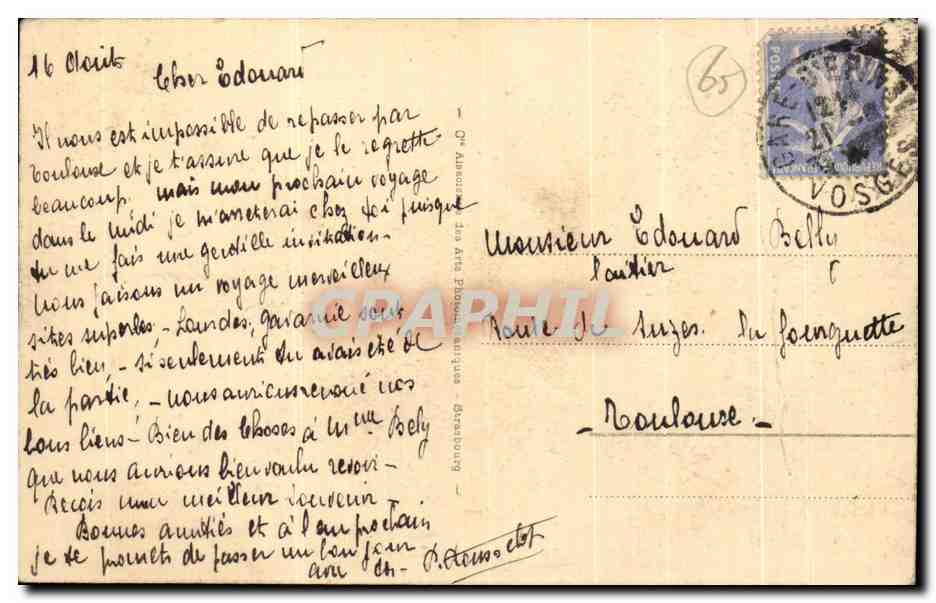 16 Août
Cher Edouard
Il nous est impossible de repasser par
Toulouse et je t'assure que je le regrette
beaucoup. mais mon prochain voyage
dans le midi je m'arreterai chez toi puisque
tu me fais une gentille invitation -
nous faisons un voyage merveilleux
sites superbes - Lourdes, gavarnie sont
très bien, - si seulement tu avais été de
la partie, - nous aurions renoué nos
bons liens - Bien des choses à Mme Bely
que nous aurions bien voulu revoir -
Reçois mon meilleur souvenir
Bonnes amitiés et à l'an prochain
je te promets de passer un bon jour
avec toi - P. Rousselot
Cie Alsacienne des Arts Photomécaniques - Strasbourg -
65
POSTES
RÉPUBLIQUE FRANÇAISE
VOSGES
Monsieur Edouard Belly
laitier
Route de la
Toulouse -
CPAPHIL